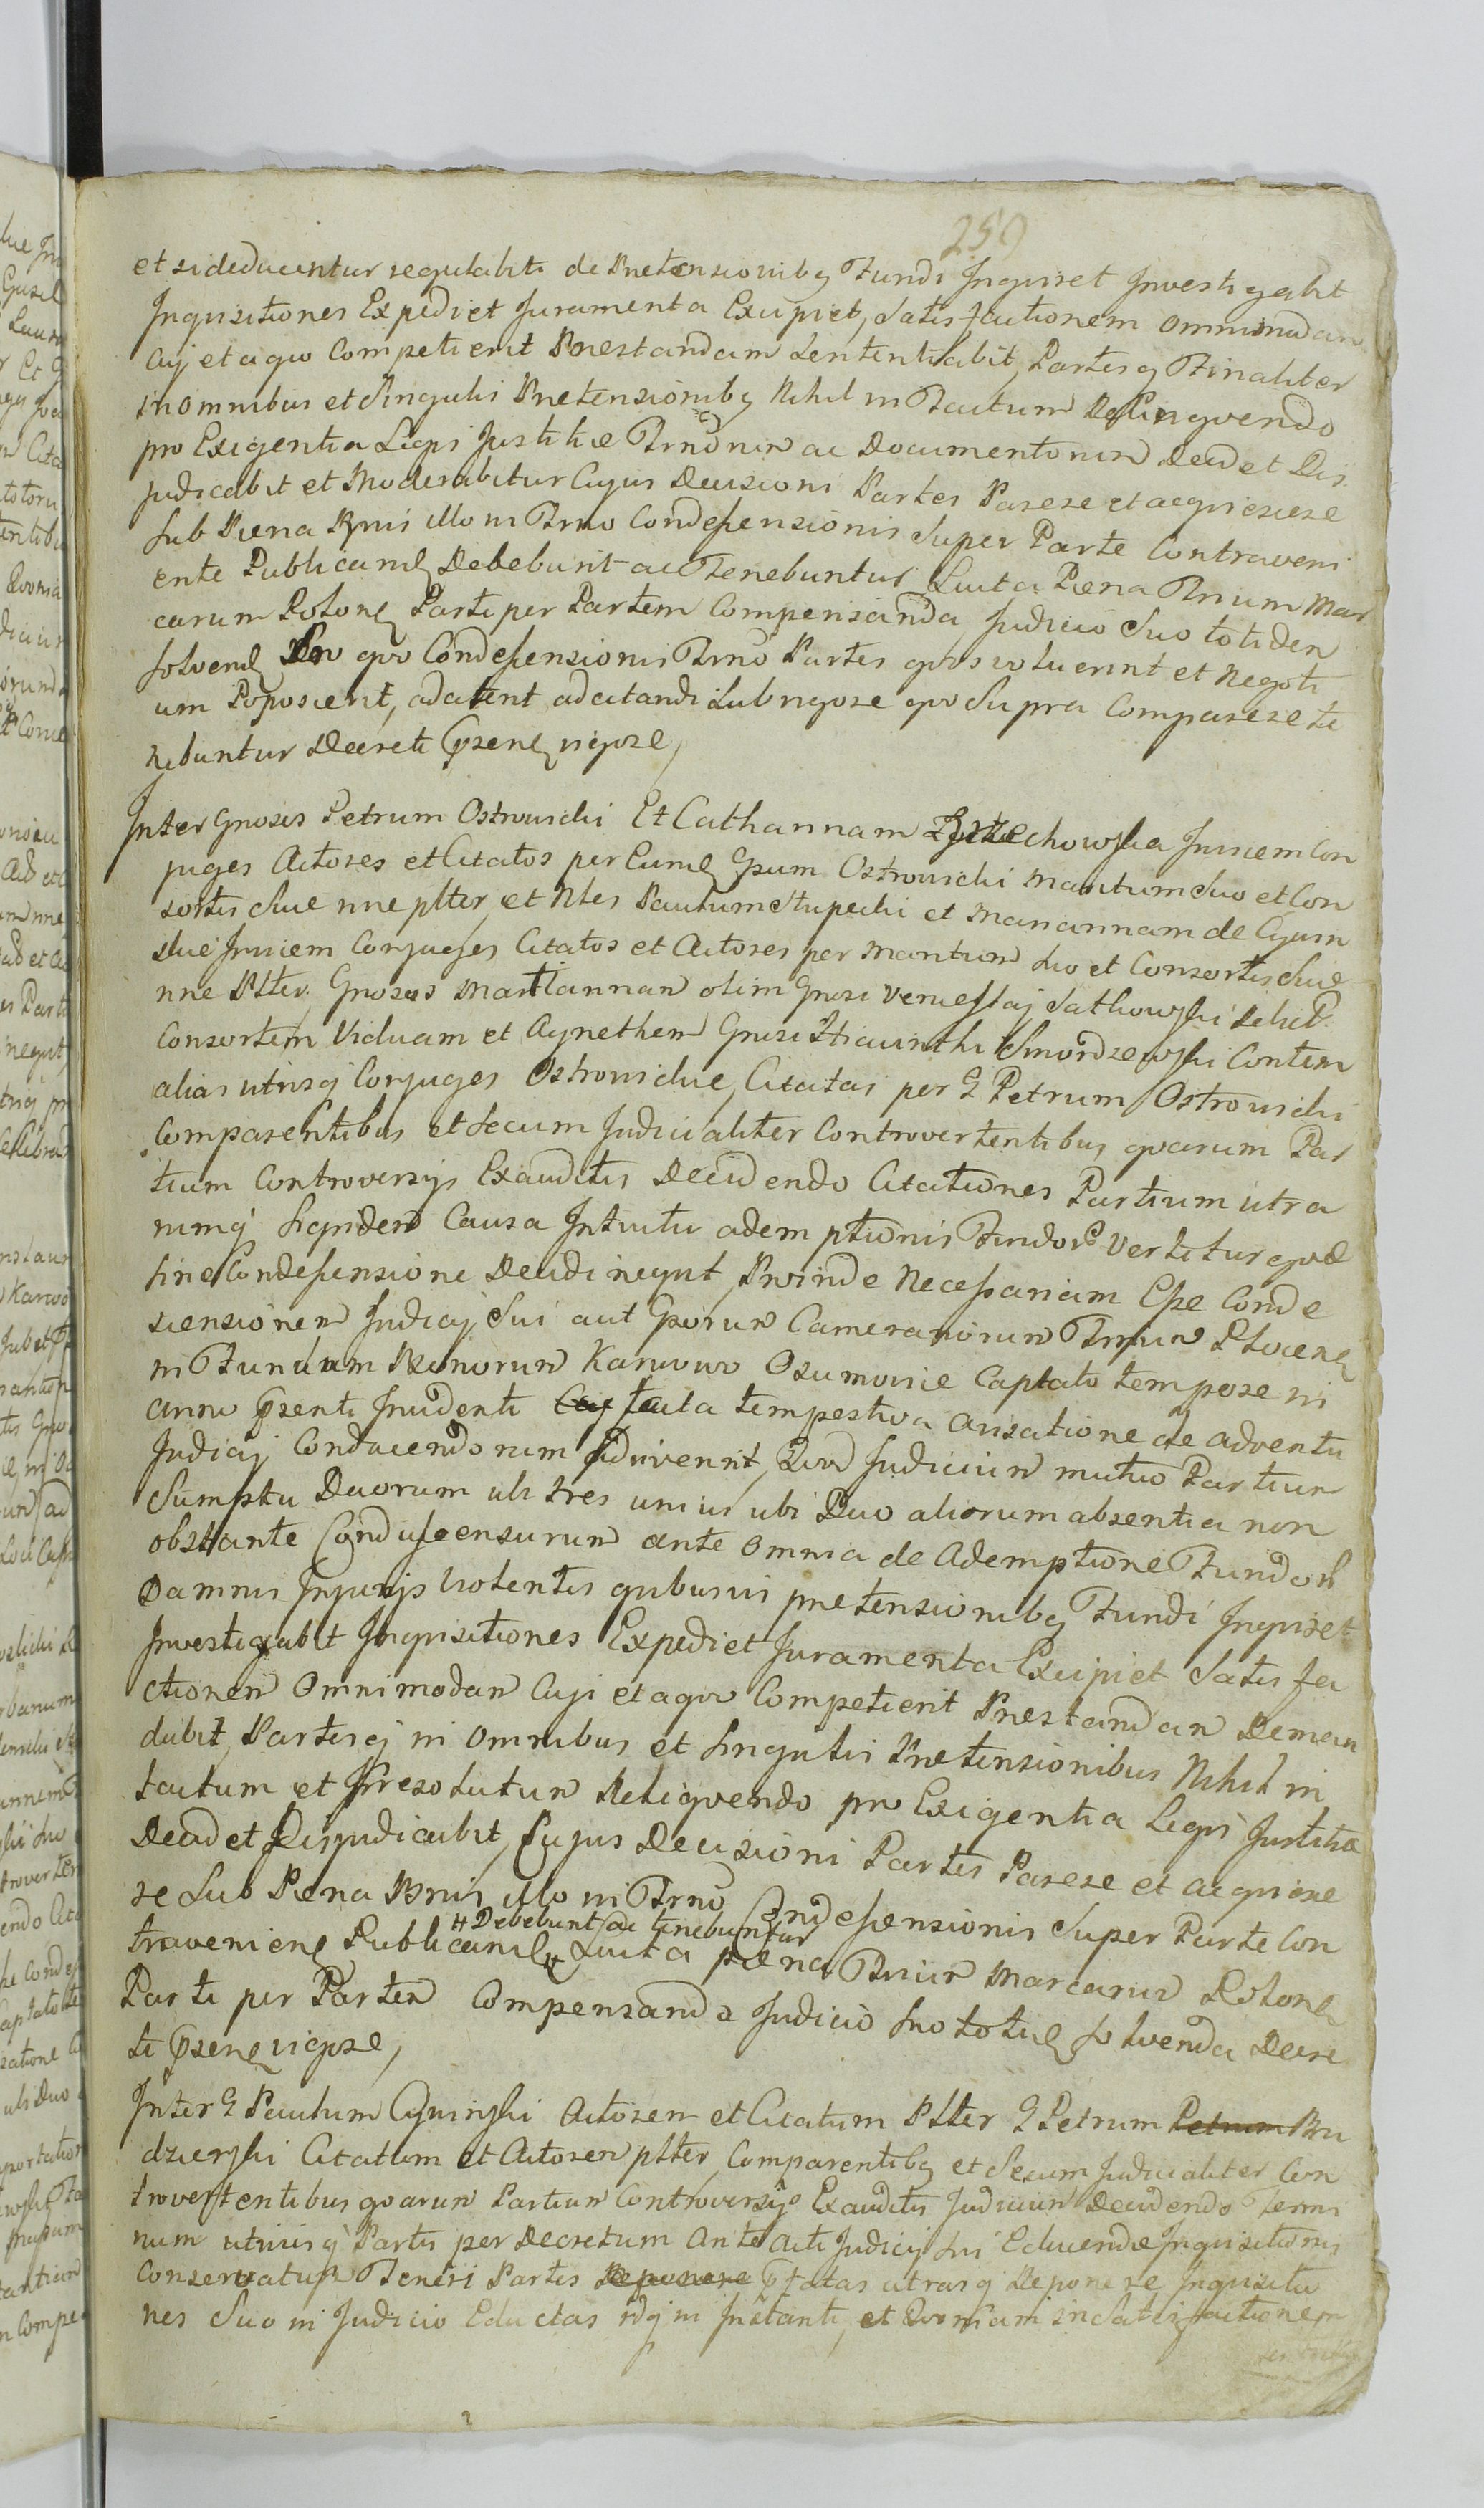 259
et si deducentur regulabit de Prætensionibq Fundi Inquiret Investigabit
Inquisitiones Expediet Juramenta Excipiet, Satisfactionem omnimodam
Cuj et a quo Competierit Præstandam Sententiabit, Partesq Finaliter
in omnibus et Singulis Prætensionibq Nihil in Tacitum Relinqvendo
pro Exigentia Legis Justitiæ Trnorum ac Documentorum Decidet Dis
judicabit et Moderabitur Cujus Decisioni Partes Parere et acqviescere
Sub Pæna Bnnis illo in Trno Condescensionis Super Parte Contraveni
ente Publicand Debebunt ac Tenebuntur Luita Pæna Trium Mar
carum Polon Parti per Partem Compensanda Judicio Suo totidem
Solvend Pro qvo Condescensionis Trno Partes qvos voluerint et Negoti
um Poposcerit, adcitent adcitandi Sub rigore qvo Supra Comparere te
nebuntur Decreti Præsen vigore,
Inter Gnosos Petrum Ostrowicki Et Catharinam Invicem Con
juges Actores et Citatos per Eund Gsum Ostrowicki Maritum Suo et Con
sortis Suæ nne plter, et Nbles Paulum Stupecki et Mariannam de Cyum
Suæ Invicem Conjuges Citatos et Actores per Maritum Suo et Consortis Suæ
nne Plter. Gnosas Mariannam olim Gnosi Sathowski Relict
Consortem Viduam et Agnethem Gnosi Hiacinthi Smordzewski Contem
alias utrusq Conjuges Ostrowickie, Citatas per G Petrum Ostrowicki
Comparentibus et Secum Judicialiter Controvertentibus qvarum Par
tium Controversijs Exauditis Decidendo Citationes Partium utra
rumq Siqvidem Causa Intuitu ademptionis Fundor Vertitur qvæ
Sine Condescensione Decidi neqvit, Proinde Necessariam Esse Conde
scensionem Judicij Sui aut Gsorum Camerariorum Trium Plocen
in Fundum Bonorum Karwowo Captato tempore in
anno Præsenti Incidenti facta tempestiva avisatione de adventu
Judicij Conducendorum Advenerit, Quod Judicium mutuo Partium
Sumptu Duorum ubi tres unius ubi Duo aliorum absentia non
obstante Condescensurum ante Omnia de Ademptione Fundor
Damnis Injurijs Violentis qvibusvis prætensionibq Fundi Inqviret
Investigabit Inqvisitiones Expediet Juramenta Excipiet Satisfa
ctionem Omnimodam Cuji et a qvo Competierit Præstandam Deman
dabit, Partesq in Omnibus et Singulis Prætensionibus Nihil in
tacitum et Irresolutum Reliqvendo pro Exigentia Legis Justitiæ
Decidet Disjudicabit, Cujus Decisioni Partes Parere et acqviesce
re Sub Pæna Bnnis illo in Trno Condescensionis Super Parte Con
# Debebunt ac tenebuntur
travenien Publicand # Luita pæna Trium Marcarum Polon
Parti per Partem Compensanda Judicio Suo totid Solvenda Decre
ti Præsen vigore,
Inter G Paulum Actorem et Citatum Plter G Petrum Petrum Bu
dzierski Citatum et Actorem plter, Comparentibq et Secum Judicialiter Con
trovertentibus qvarum Partium Controversijs Exauditis Judicium Decidendo Termi
num utriusq Partis per Decretum Ante Acti Judicij Sui Educendæ Inqvisitionis
Conservatum Teneri Partes Deponere Pfatas utrasq Deponere Inqvisitio
nes Suo in Judicio Eductas idq in Instanti, et Qvoniam in Satisfactionem